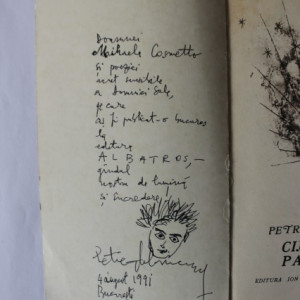 Doamnei
Mihaela Cosmetto
și poeziei
a Domniei Sale,
pe care
aș fi publicat-o bucuros
la
editura
ALBATROS, —
gândul
nostru de lumină
și încredere,
4 august 1991
București
PETR
CI
PA
EDITURA ION